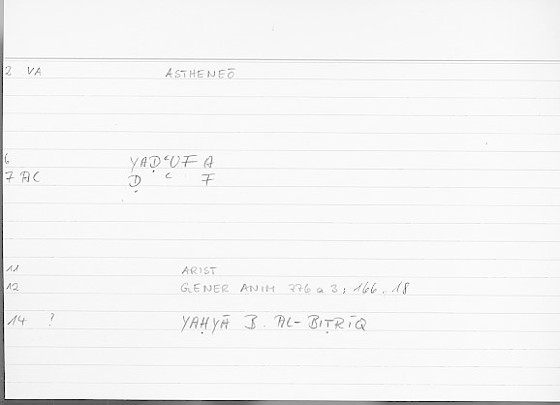 2 VA ASTHENEŌ
6 YAḌʿUF A
7 AC Ḍ ʿ F
11 ARIST
12 GENER ANIM 776 a 3; 166.18
14 ? YAḤYĀ B. AL-BIṬRĪQ